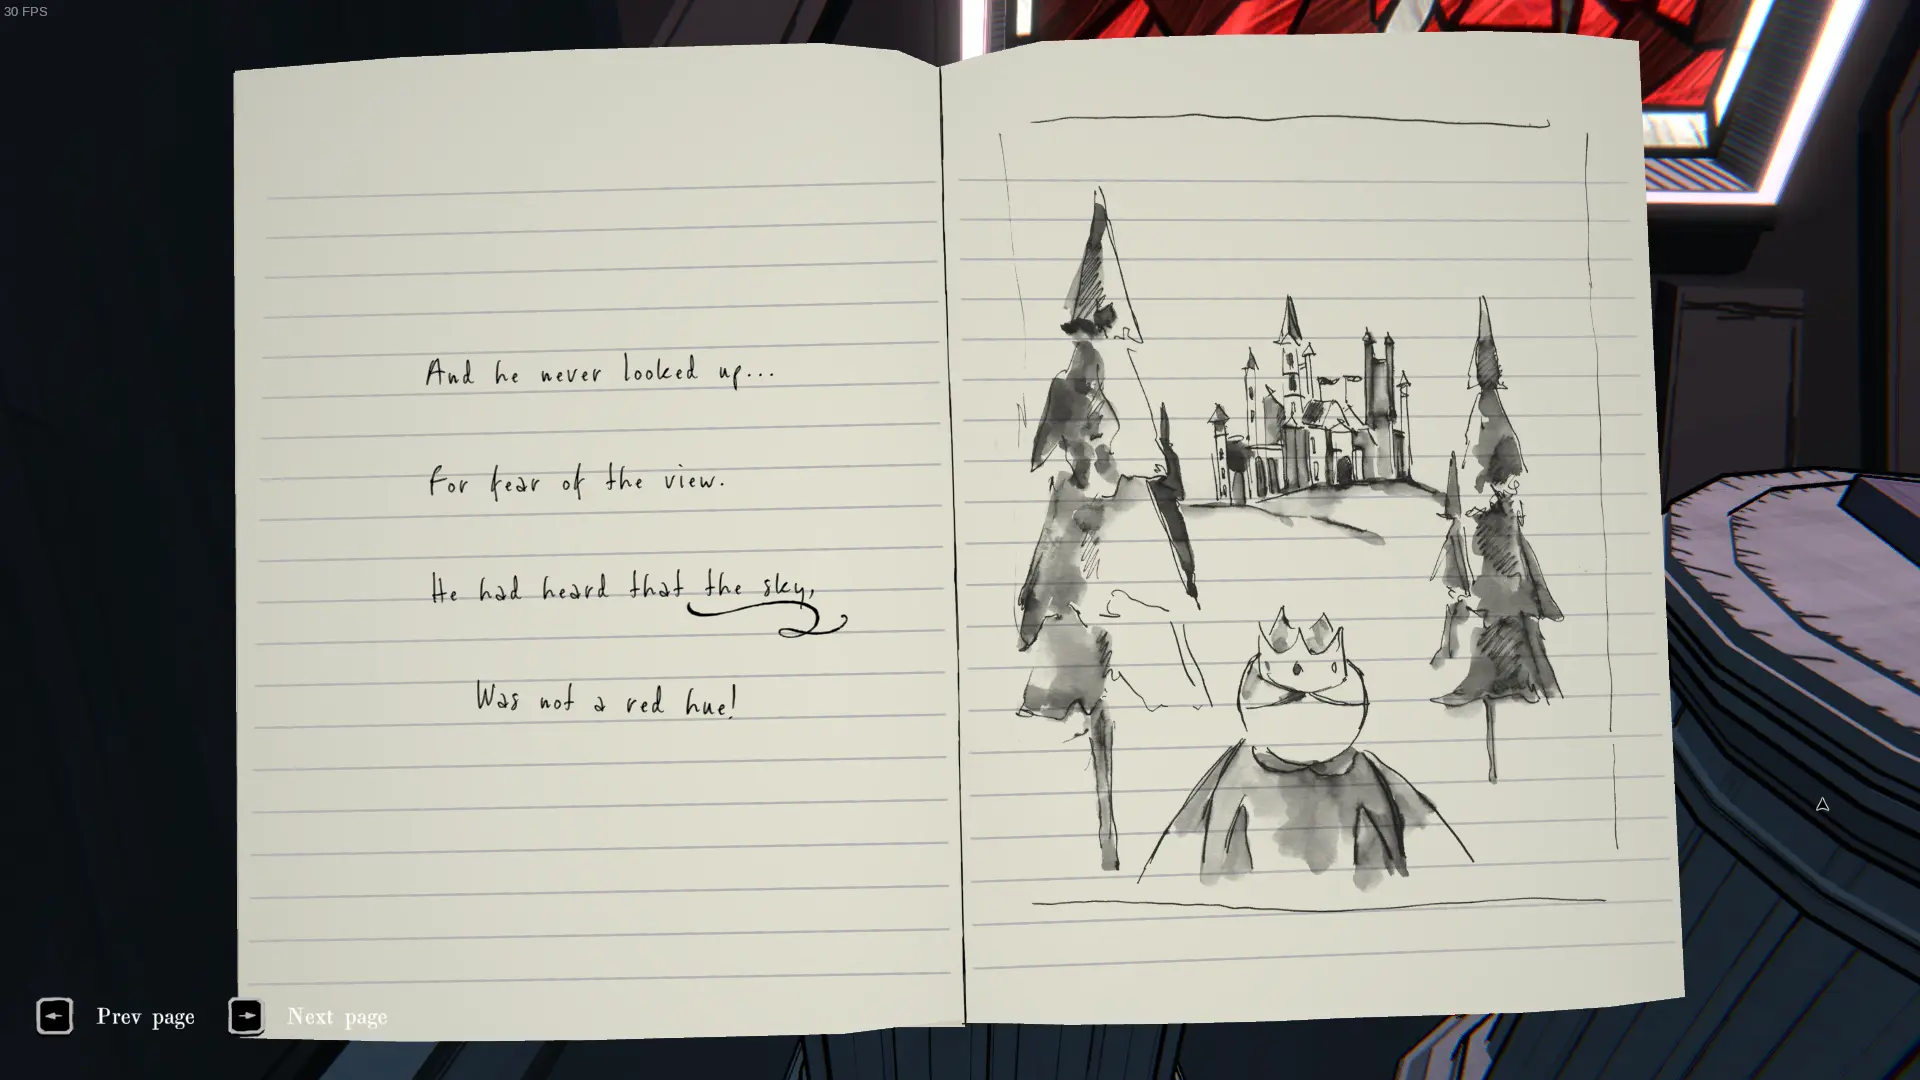 30 FPS
And he never looked up...
For fear of the view.
He had heard that the sky,
Was not a red hue!
Prev page
Next page